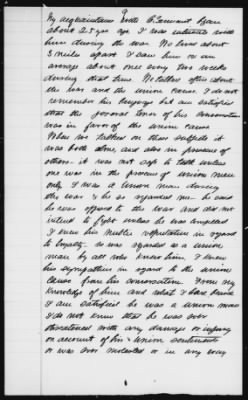 9
My acquaintance with B Bean
about 25 yrs ago I was intimate with
him during the war. We lived about
3 miles apart I saw him on an
average about once every two weeks
during that time. We talked often about
the war and the union cause. I do not
remember his language but am satisfied
that the general tenor of his conversation
was in favor of the union cause
When we talked on these subjects it
was both alone, and also in presence of
others - it was not safe to talk unless
one was in the presence of union men
only I was a Union man during
the war & he so regarded me. he said
he was opposed to the war and did not
intend to fight unless he was compelled
I knew his public reputation in regard
to loyalty. he was regarded as a union
man by all who knew him, I knew
his sympathies in regard to the union
cause from his conversation. From my
knowledge of him and what I have
I am satisfied he was a union man
I do not know that he was ever
threatened with any damage or injury
on account of his union sentiments
or was ever molested or in any way